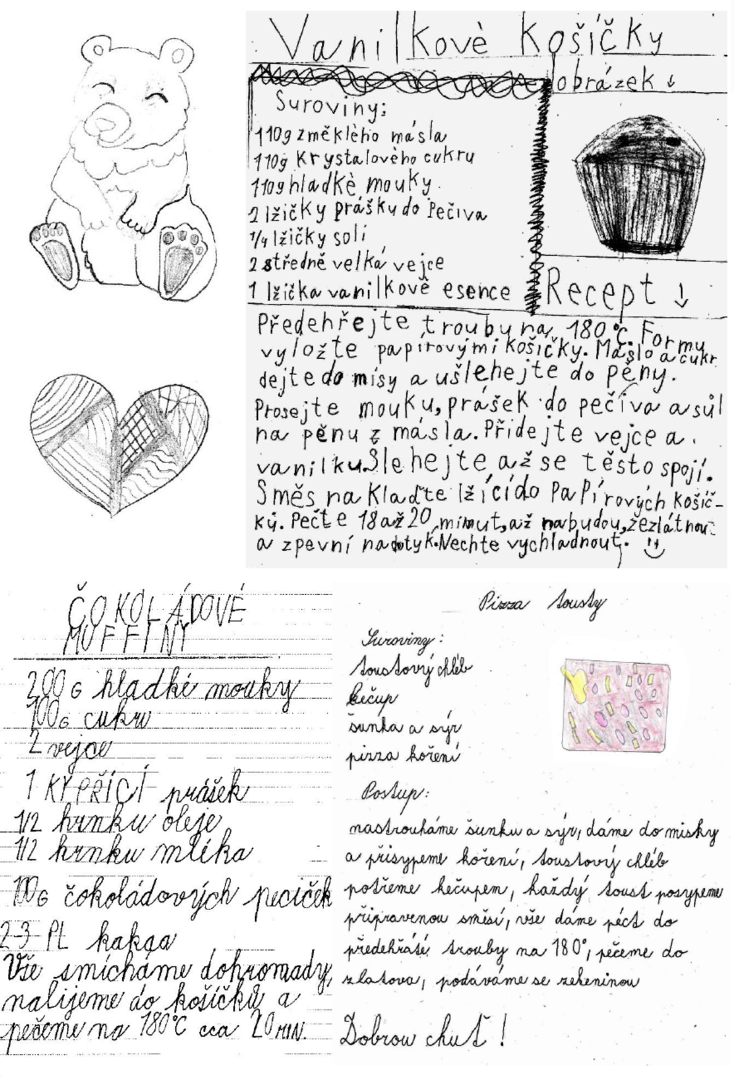 Vanilkové Košíčky
obrázek ↓
Suroviny:
110g změklého másla
110g Krystalového cukru
110g hladké mouky
2 lžičky prášku do Pečiva
1/4 lžičky soli
2 středně velká vejce
1 lžička vanilkově esence
Recept ↓
Předehřejte trouby na 180°C. Formu
vyložte papírovými košíčky. Máslo a cukr
dejte do mísy a ušlehejte do pěny.
Prosejte mouku, prášek do pečiva a sůl
na pěnu z másla. Přidejte vejce a
vanilku. Šlehejte až se těsto spojí.
Směs naklaďte lžící do papírových košíč-
ků. Pečte 18 až 20 minut, až nabudou, zezlátnou
a zpevní na dotyk. Nechte vychladnout.
ČOKOLÁDOVÉ
MUFFINY
200G hladké mouky
100G cukru
2 vejce
1 KYPŘÍCÍ prášek
1/2 hrnku oleje
1/2 hrnku mléka
100G čokoládových peciček
2-3 PL kakaa
Vše smícháme dohromady,
nalijeme do košíčků a
pečeme na 180°C cca 20 MIN.
Pizza tousty
Suroviny:
toustový chléb
kečup
šunka a sýr
pizza koření
Postup:
nastrouháme šunku a sýr, dáme do misky
a přisypeme koření, toustový chléb
potřeme kečupem, každý toust posypeme
připravenou směsí, vše dáme péct do
předehřáté trouby na 180°, pečeme do
zlatova, podáváme se zeleninou
Dobrou chuť!